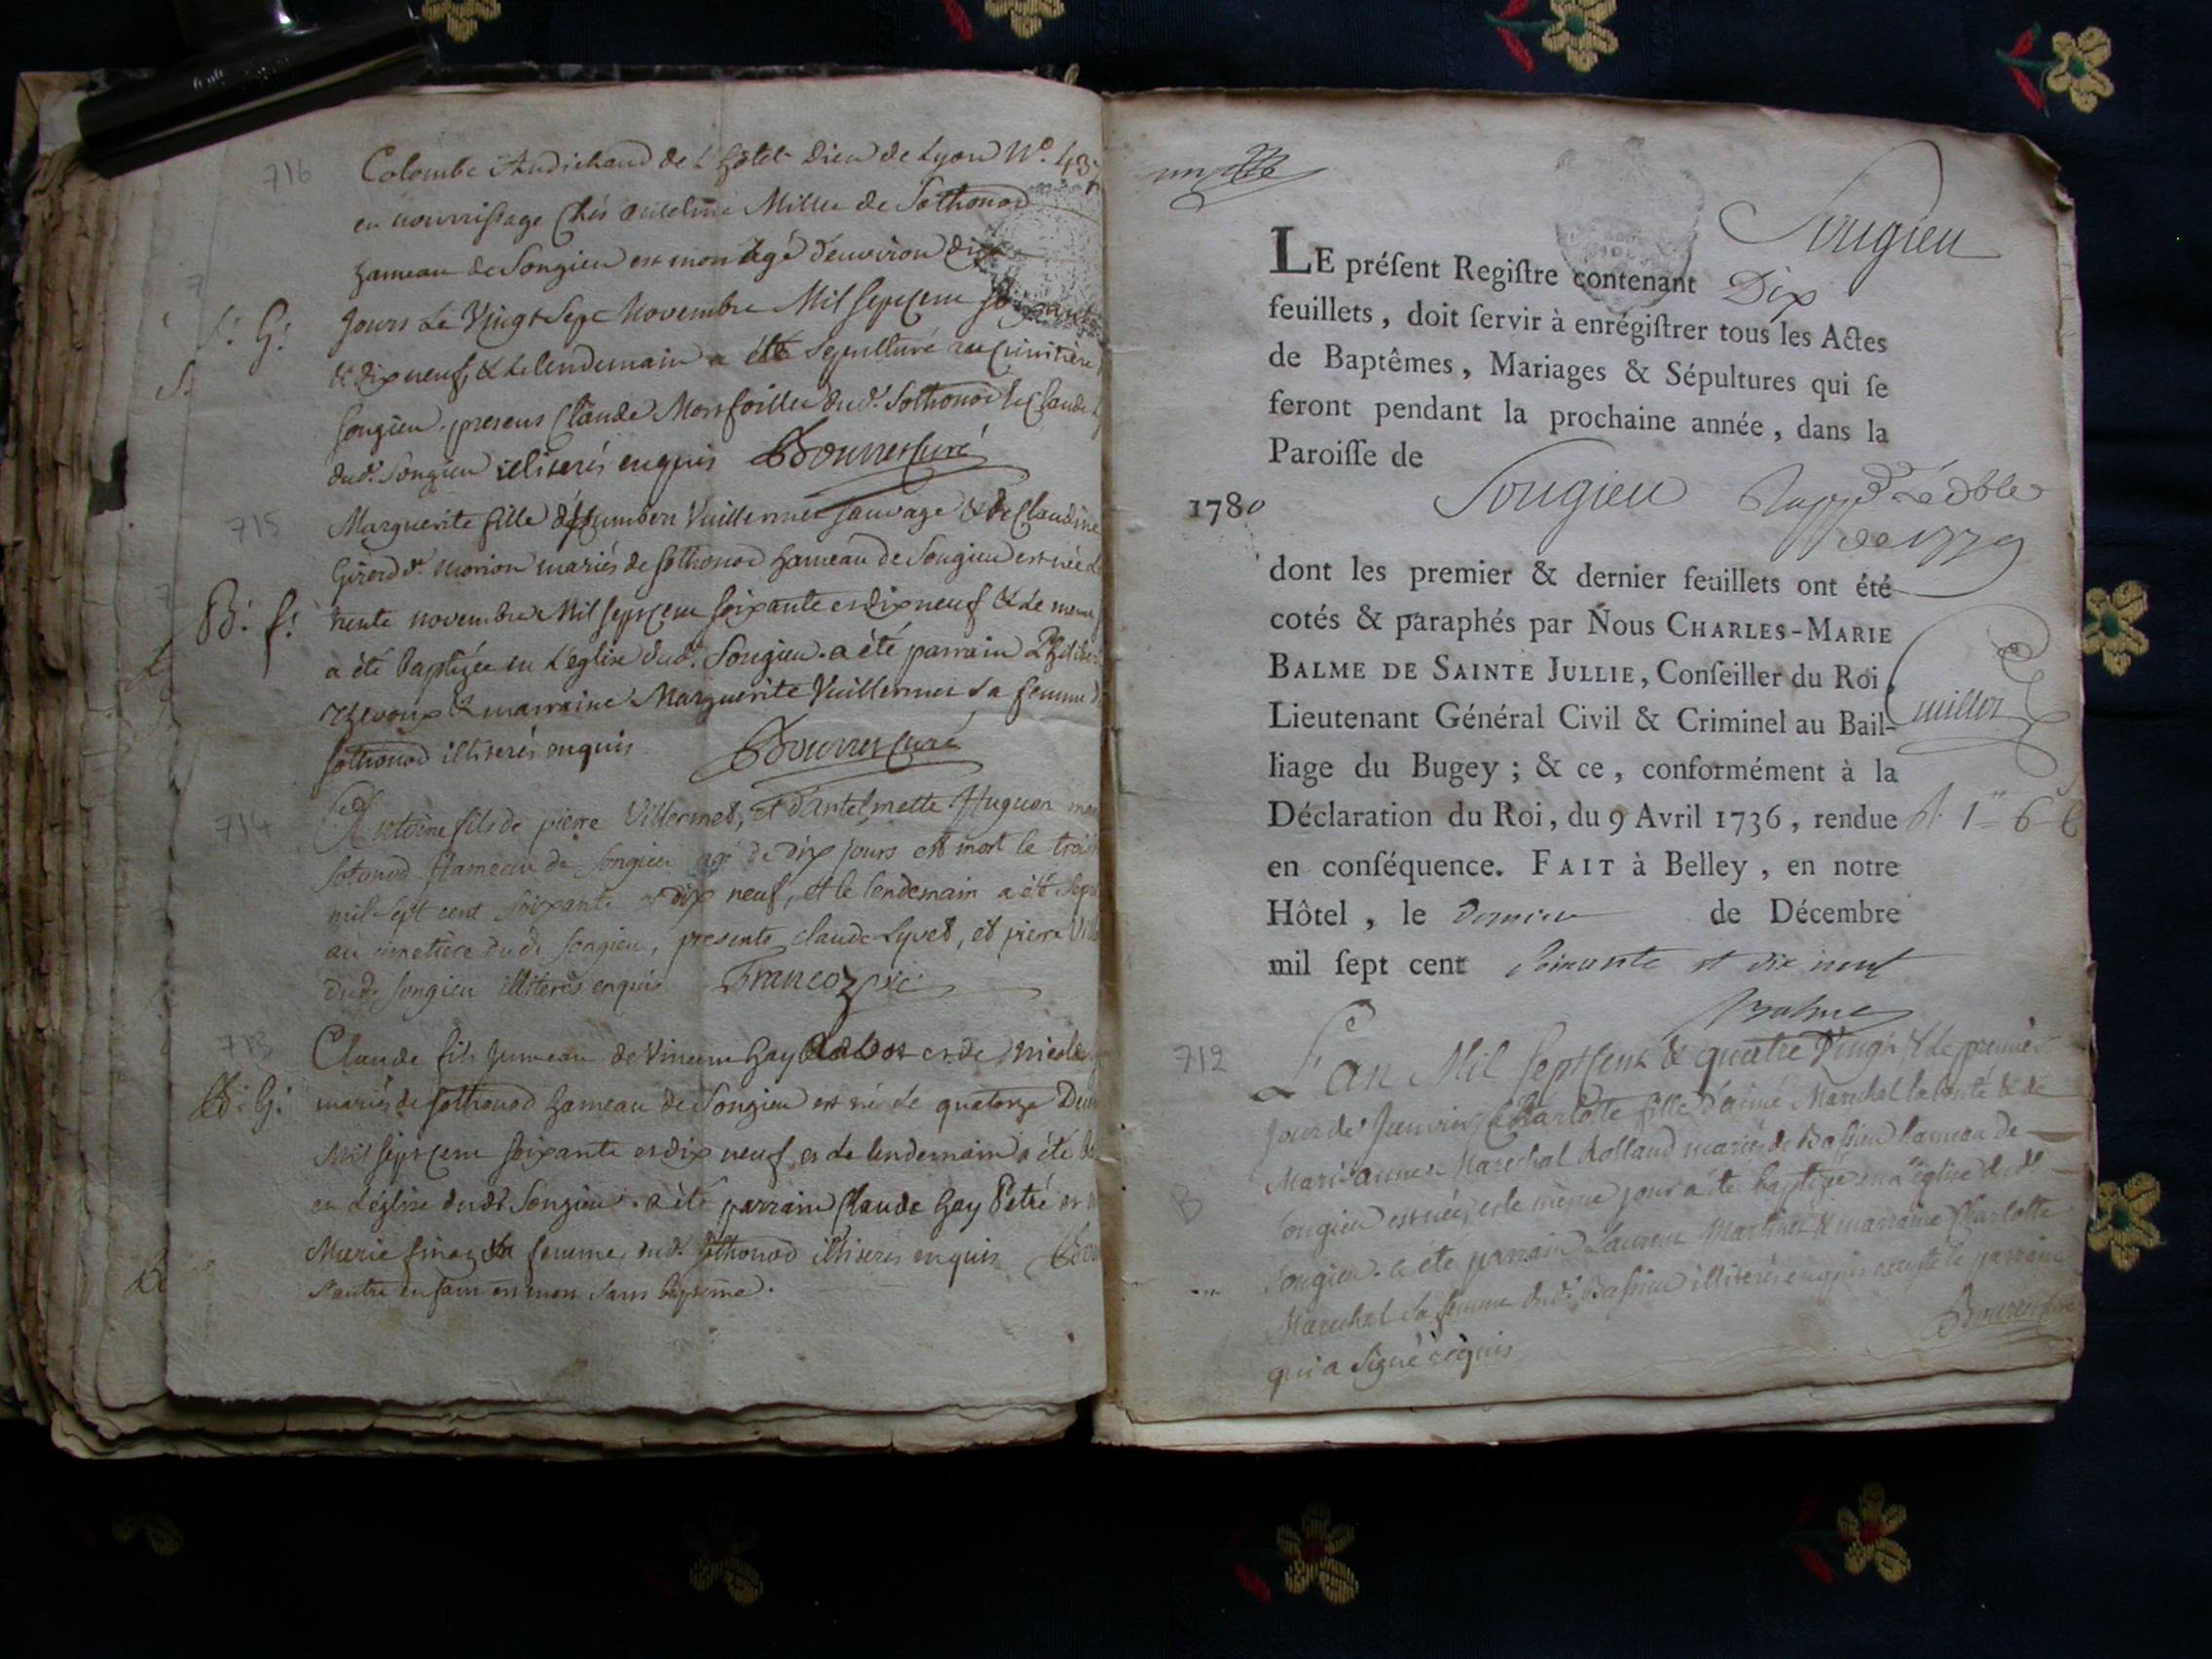 716
Colombe Audichaud de L'hotel-Dieu de Lyon N°. 437
en nourrissage Chés anselme Millet de Sothonod
hameau de Songieu est mort agé d'environ dix
S: G:
jours Le Vingt Sept Novembre Mil Sept cent soixante
& dix neuf, & Le lendemain a été Sepulturé au cimitière
Songieu. presens Claude Monfoiller dud. Sothonod & Claude
dud. Songieu illiterés enquis Bouvret curé
715
Marguerite fille d'humbert Vuillermet Sauvage & de Claudine
Girerd d. morion mariés de Sothonod hameau de Songieu est née Le
B: f:
trente novembre Mil Sept Cent Soixante et dix neuf & Le meme
a été Baptizée en L'eglise dud. Songieu. a été parrain Philibert
& marraine Marguerite Vuillermet Sa femme
Sothonod illiterés enquis Bouvret curé
714
Antoine fils de pierre Villermet, et d'antelmette Huguon
Sotonod Hameau de Songieu agé de dix jours est mort le trois
mil sept cent soixante et dix neuf, et le lendemain a été Sepu
au cimetière dud. Songieu, presents claude Lyvet, et pierre Vill
dud. Songieu illiterés enquis Francoz vic:
713
Claude fils Jumeau de Vincent Gay et de Nicole
B: G:
mariés de Sothonod hameau de Songieu est né Le quatorze Dec
Mil Sept Cent Soixante et dix neuf et Le lendemain a été Ba
en L'église dud. Songieu. a été parrain Claude Gay Petré et
Marie finaz Sa femme, dud. Sothonod illiterés enquis Bouv
L'autre enfant est mort Sans Baptême.
Songieu
LE préſent Regiſtre contenant Dix
feuillets, doit ſervir à enrégiſtrer tous les Actes
de Baptêmes, Mariages & Sépultures qui ſe
feront pendant la prochaine année, dans la
Paroiſſe de
1780
Songieu
de 1779
dont les premier & dernier feuillets ont été
cotés & paraphés par Nous CHARLES-MARIE
BALME DE SAINTE JULLIE, Conſeiller du Roi,
Lieutenant Général Civil & Criminel au Bail-
liage du Bugey ; & ce, conformément à la
Déclaration du Roi, du 9 Avril 1736, rendue
en conſéquence. FAIT à Belley, en notre
Hôtel, le Dernier de Décembre
mil ſept cent Soixante et dix neuf
Balme
712
L'an Mil Sept Cent & quatre Vingt & Le premier
Jour de Janvier Charlotte fille d'aimé Marechal la bonté & de
Marie-anne Marechal Rolland mariés de Bassieu hameau de
B
Songieu est née, et le même jour a été baptizée en L'eglise dud.
Songieu. a été parrain Laurent Martinet & marraine Charlotte
Marechal Sa femme dud. Bassieu illiterés enquis excepté le parrain
qui a Signé requis Bouvret curé